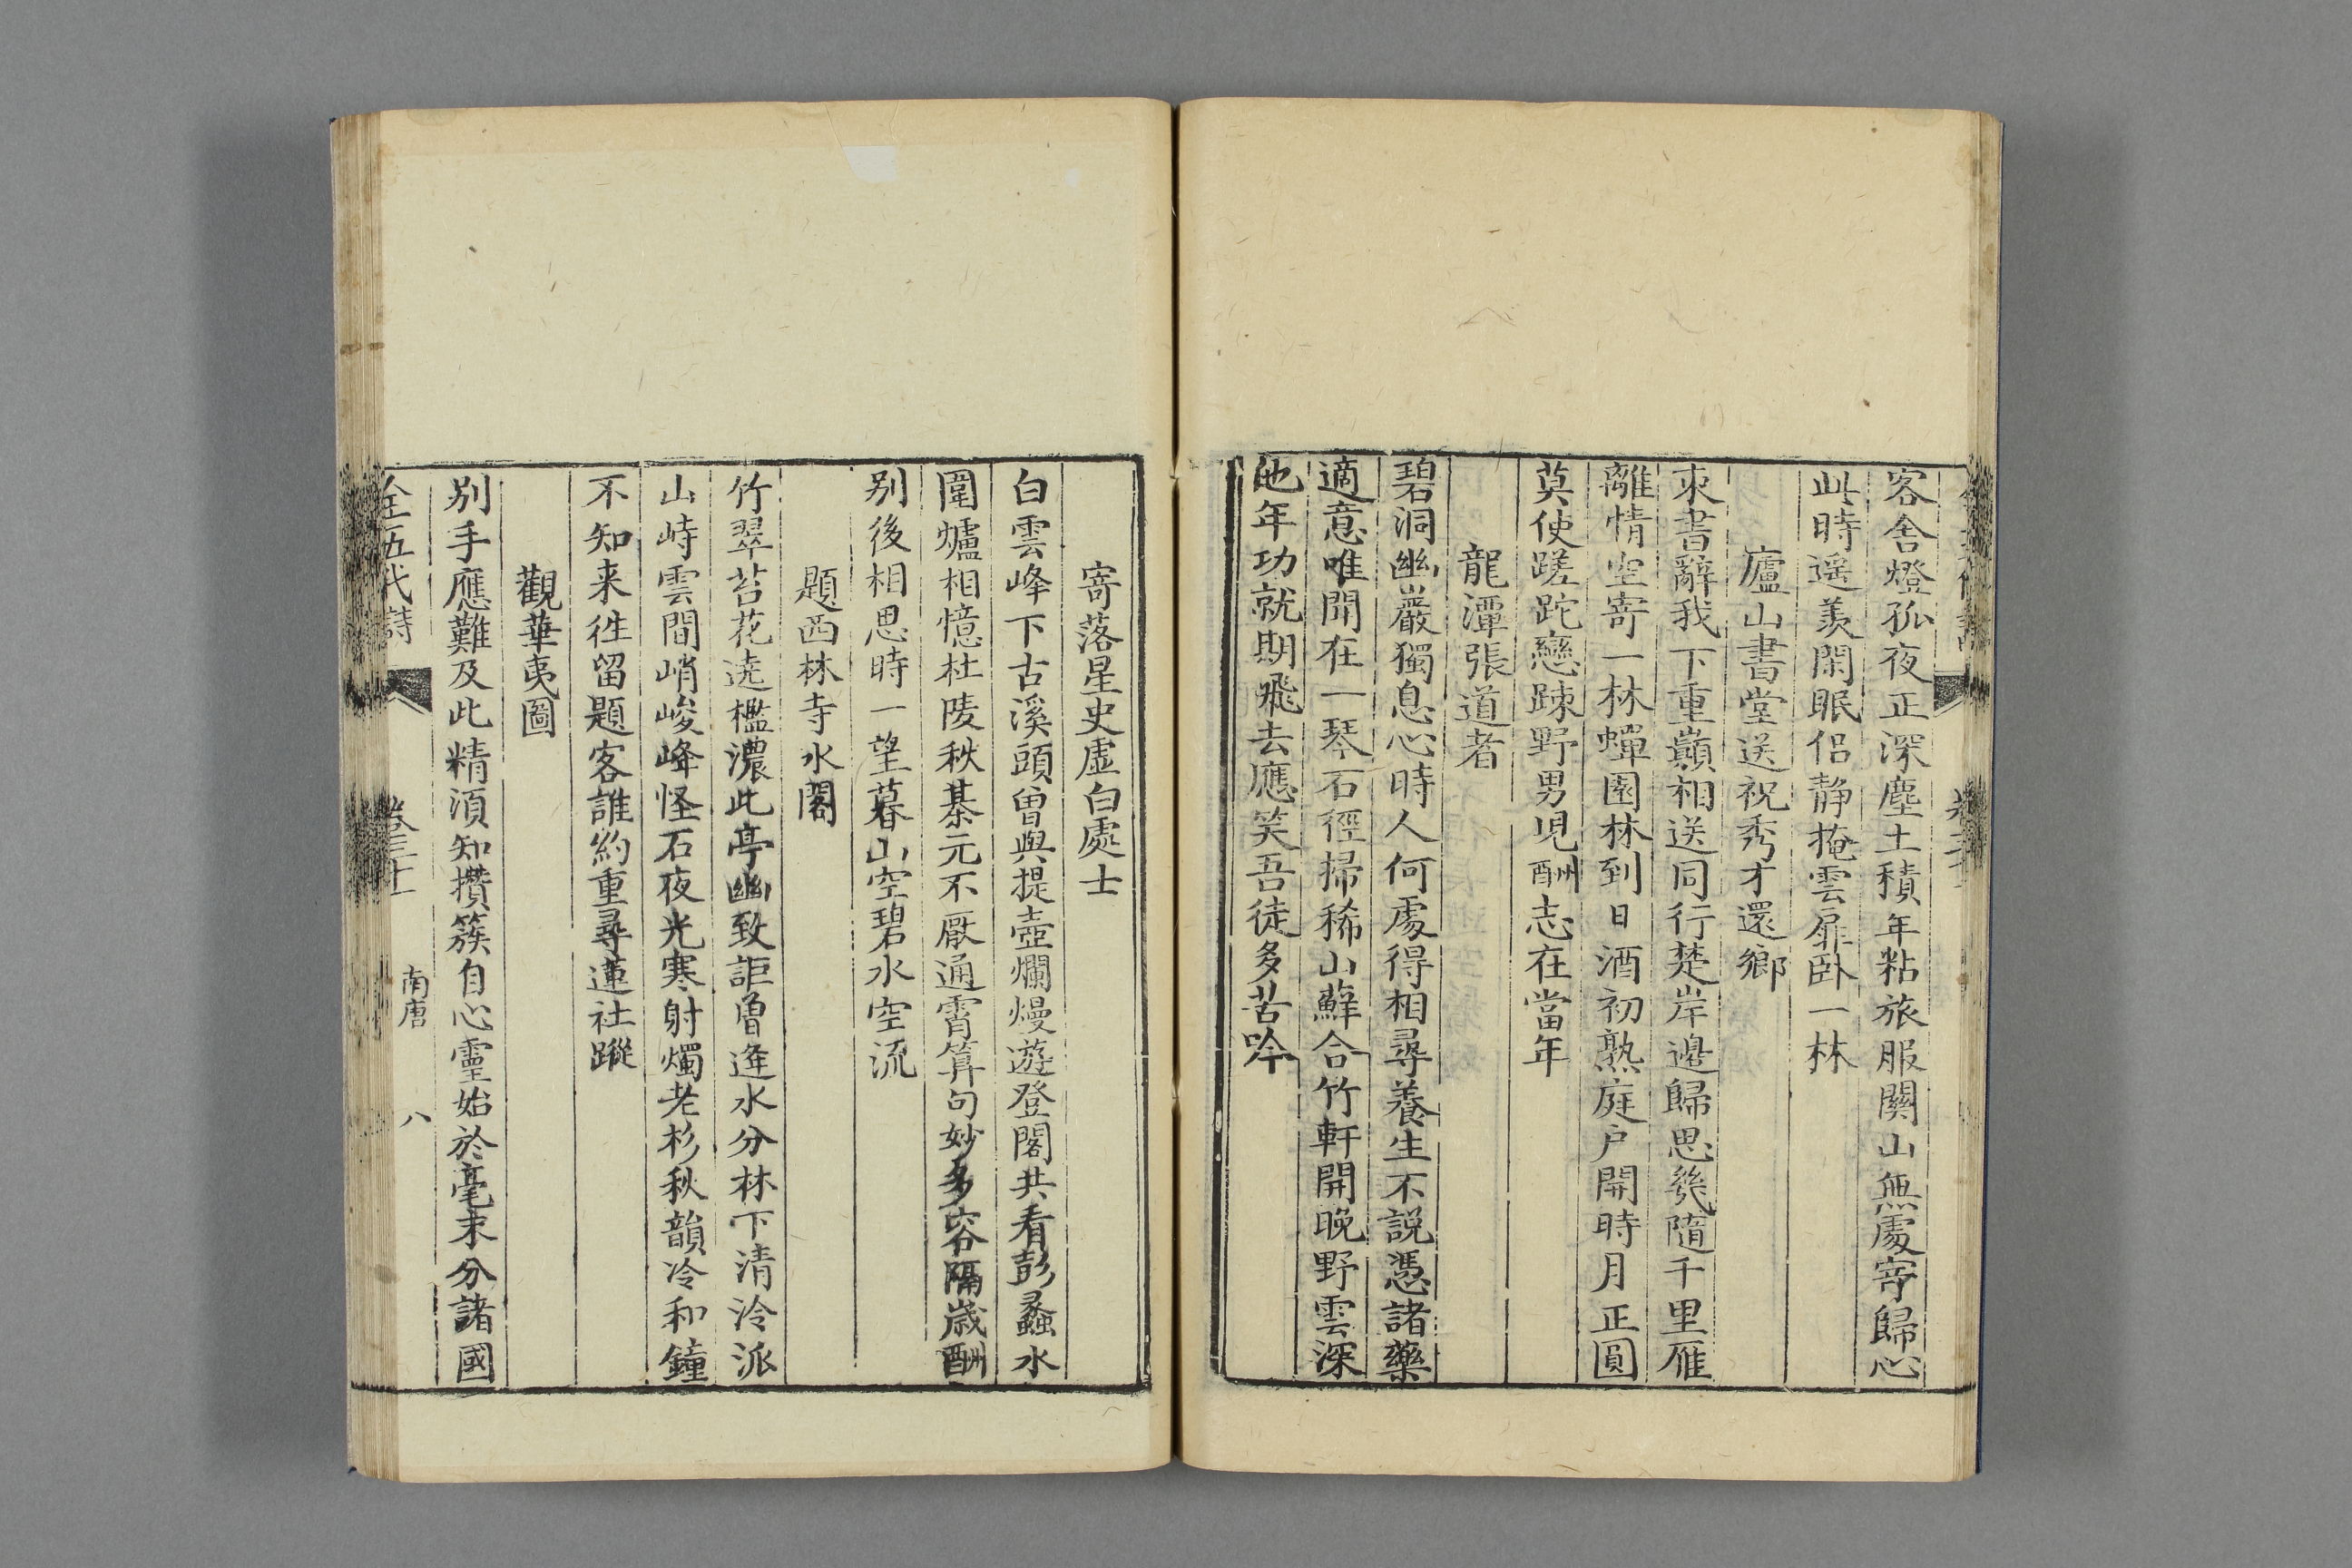 客舍燈孤夜正深塵土積年粘旅服關山無處寄歸心
此時遥羨閑眠侶静掩雲扉卧一林
廬山書堂送祝秀才還鄉
束書辭我下重巔相送同行楚岸邊歸思幾隨千里雁
離情空寄一林蟬園林到日酒初熟庭户開時月正圓
莫使蹉跎戀疎野男兒酬志在當年
龍潭張道者
碧洞幽巖獨息心時人何處得相尋養生不說憑諸藥
適意唯聞在一琴石徑掃稀山蘚合竹軒開晚野雲深
他年功就期飛去應笑吾徒多苦吟
寄落星史虚白處士
白雲峰下古溪頭曾與提壺爛熳遊登閣共看彭蠡水
圍爐相憶杜陵秋棊元不厭通宵筭句妙多容隔歲酬
别後相思時一望暮山空碧水空流
題西林寺水閣
竹翠苔花遶檻濃此亭幽致詎曾逢水分林下清泠派
山峙雲間峭峻峰怪石夜光寒射燭老杉秋韻冷和鐘
不知来徃留題客誰約重尋蓮社蹤
觀華夷圖
别手應難及此精須知攢簇自心靈始於毫末分諸國
全五代詩
南唐
八